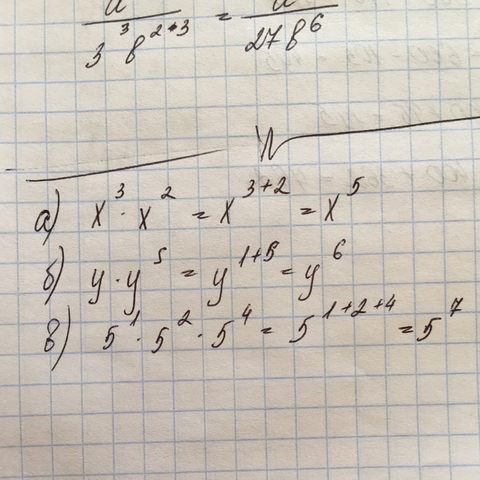 3³b²*³ = 27b⁶
а) x³·x² = x³⁺² = x⁵
б) y·y⁵ = y¹⁺⁵ = y⁶
в) 5¹·5²·5⁴ = 5¹⁺²⁺⁴ = 5⁷